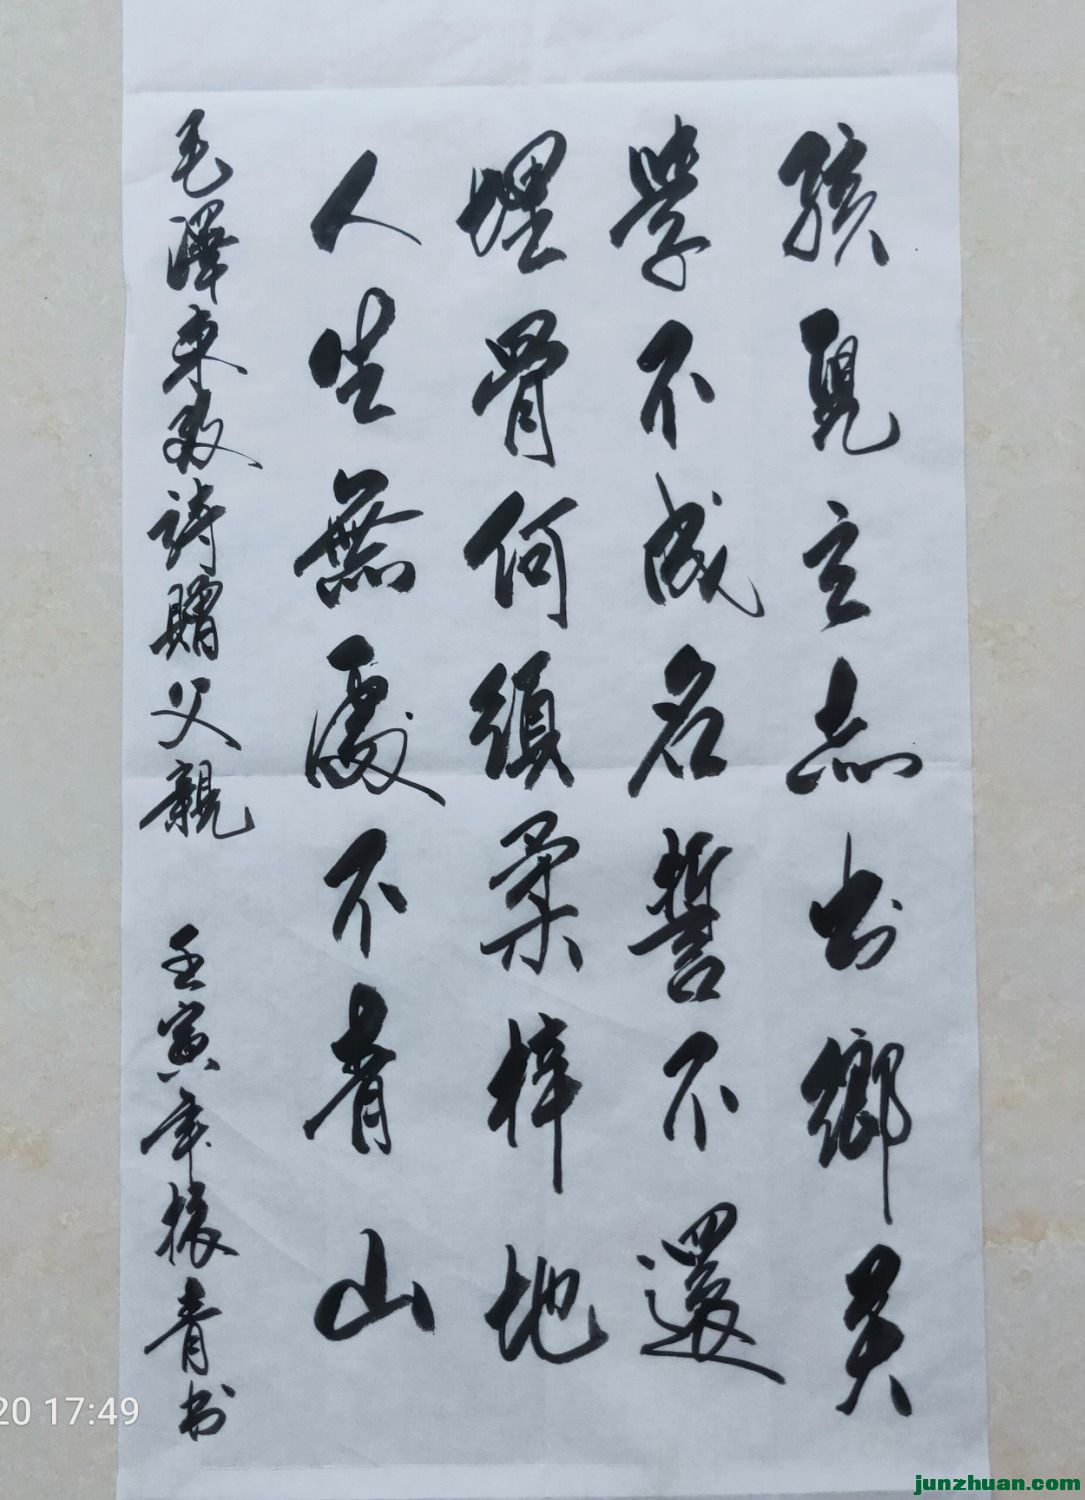 孩兒立志出鄉关
學不成名誓不還
埋骨何須桑梓地
人生無處不青山
毛澤東改詩贈父親 壬寅年振青书
20 17:49
junzhuan.com